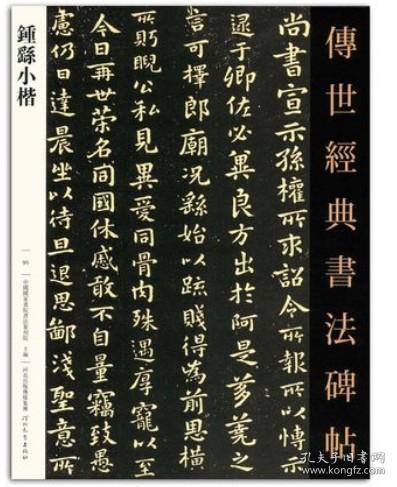 傳世經典書法碑帖
尚書宣示孫權所求詔令所報所以博示
逮于卿佐必冀良方出於阿是芻蕘之
言可擇郎廟況繇始以疏賤得為前恩橫
所盱睨公私見異愛同骨肉殊遇厚寵以至
今日再世榮名同國休慼敢不自量竊致愚
慮仍日達晨坐以待旦退思鄙淺聖意所
鍾繇小楷
主編
河北出版傳媒集團
河北教育出版社
孔夫子旧书网
www.kongfz.com